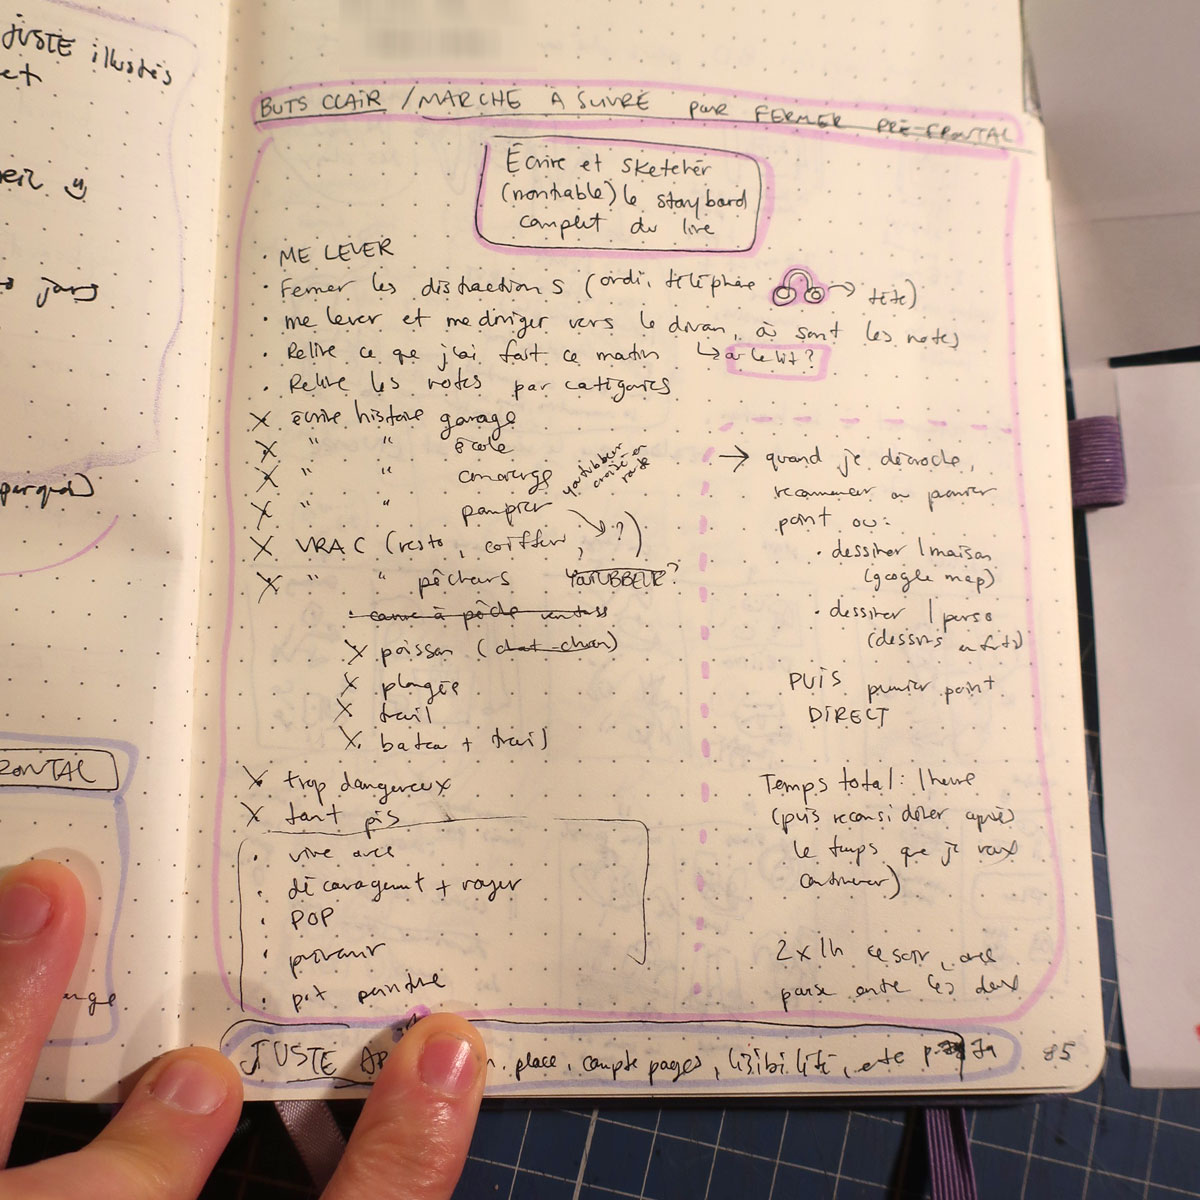 JUSTE illustrés
et
jars
RONTAL
BUTS CLAIR / MARCHE A SUIVRE pour FERMER PRÉ-FRONTAL
Écrire et sketcher
(montrable) le storyboard
complet du livre
· ME LEVER
· Fermer les distractions (ordi, téléphone → tête)
· me lever et me diriger vers le divan, où sont les notes
· Relire ce que j'ai fait ce matin ↳ ou le lit ?
· Relire les notes par catégories
X écrire histoire garage
X " " école
X " " concierge
youtubbeur
croisé en
route
X " " pompier
X VRAC (resto, coiffeur, ?)
X " " pêcheurs YOUTUBBEUR?
· canne à pêche
X poisson (chat-chan)
X plongée
X trail
X bateau + trail
X trop dangereux
X tant pis
· vivre avec
· découragement + voyer
· POP
· prévenir
· pot peinture
→ quand je décroche,
recommencer au premier
point ou:
· dessiner 1 maison
(google map)
· dessiner 1 perso
(dessins enfants)
PUIS premier point
DIRECT
Temps total: 1 heure
(puis reconsidérer après
le temps que je veux
continuer)
2 x 1h ce soir, avec
pause entre les deux
JUSTE place, compte pages, lisibilité, etc
85